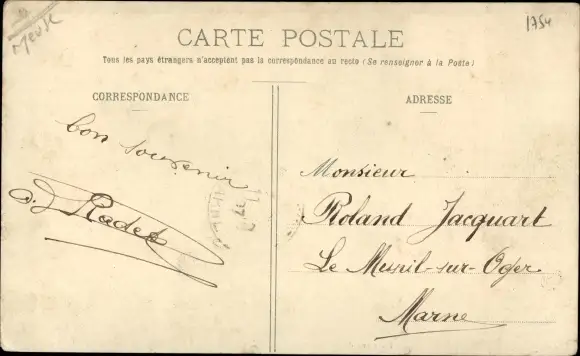 Meuse
1754
CARTE POSTALE
Tous les pays étrangers n'acceptent pas la correspondance au recto (Se renseigner à la Poste)
CORRESPONDANCE
bon souvenir
Radet
ADRESSE
Monsieur
Roland Jacquart
Le Mesnil-sur-Oger
Marne